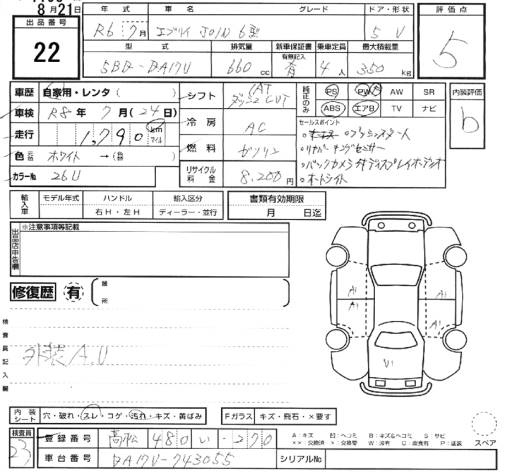 8月21日
出品番号
22
年式 車名 グレード ドア・形状
R6 7月 エブリイ JOIN 6型 5V
型式 排気量 新車保証書 乗車定員 最大積載量
有無記入
5BD-DA17V 660cc 有 4人 350kg
評価点
5
車歴 自家用・レンタ( )
車検 R8年7月(24日)
走行 1,790 km マイル
色 元色 ホワイト →( )
カラーNo 26U
シフト AT CVT
冷房 AC
燃料 ガソリン
リサイクル料金 8,200円
純正のみ
PS PW AW SR
ABS エアB TV ナビ
セールスポイント
○リヤパーキングセンサー
○バックカメラ付ディスプレイオーディオ
○オートライト
内装評価
b
輸入車 モデル年式 ハンドル 輸入区分
右H・左H ディーラー・並行
書類有効期限
月 日迄
出品店申告欄
※注意事項等記載
修復歴 有 箇所
検査員記入欄
外装A.U
A1 A1
V1
内装シート 穴・破れ・スレ・コゲ・汚れ・キズ・黄ばみ Fガラス キズ・飛石・×要す
検査員
23
登録番号 高松 480 い ・270
車台番号 DA17V-743055
シリアルNo
A:キズ B:キズ&ヘコミ S:サビ
スペア